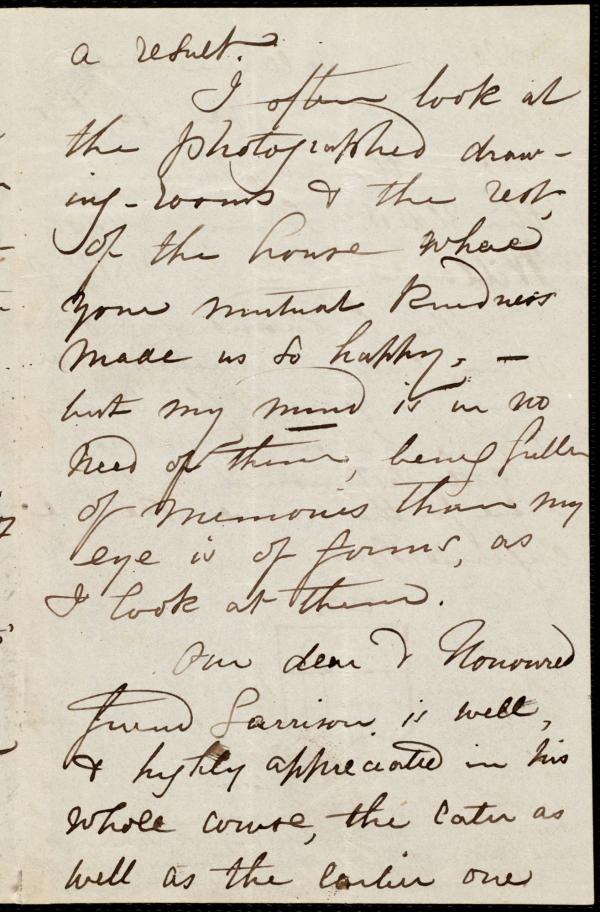 a result.
I often look at
the photographed draw-
ing-rooms & the rest,
of the house where
your mutual kindness
made us so happy, —
but my mind is in no
need of them, being fuller
of memories than my
eye is of forms, as
I look at them.
Our dear & Honoured
friend Garrison is well,
& highly appreciated in his
whole course, the later as
well as the earlier one